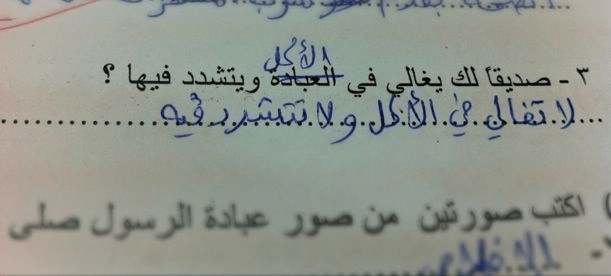 الأكل
٣ - صديقاً لك يغالي في العبادة ويتشدد فيها ؟
لا تغالي في الأكل ولا تتشدد فيه
اكتب صورتين من صور عبادة الرسول صلى